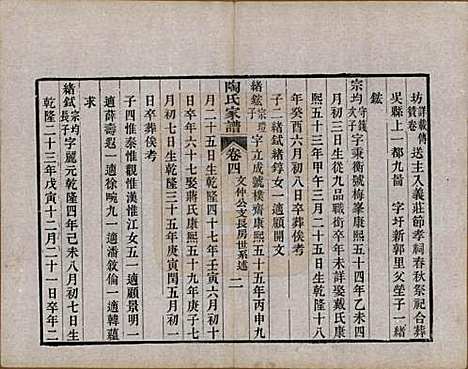 坊詳載傳贊卷送主入義莊節孝祠春秋祭祀合葬
吳縣上一都九圖 字圩新郭里父塋子一緒
鋐
宗均守錢次子字秉衡號梅峯康熙五十四年乙未
二月初三日生從九品職銜卒年未詳娶戴氏康
熙五十三年甲午三月二十五日生乾隆十八
年癸酉六月初一日卒葬俟考
子二緒鋐緒錞女一適顧開文
緒鋐宗璄子字立成號樸齋康熙五十五年丙申九
陶氏家譜 卷四 文仲公支長房世系述 二
月二十五日生乾隆四十七年壬寅六月初四
日卒年六十七娶蔣氏康熙五十九年庚子七
月初七日生乾隆三十五年庚寅閏五月初一
日卒葬俟考
子四惟泰惟觀惟漢惟江女五一適顧景明一
適薛壽恩一適徐畹九一適潘敘倫一適韓蘊
求
緒鉽宗均長子字麗元乾隆四年己未八月初七日生
乾隆二十三年戊寅十二月二十一日卒年二